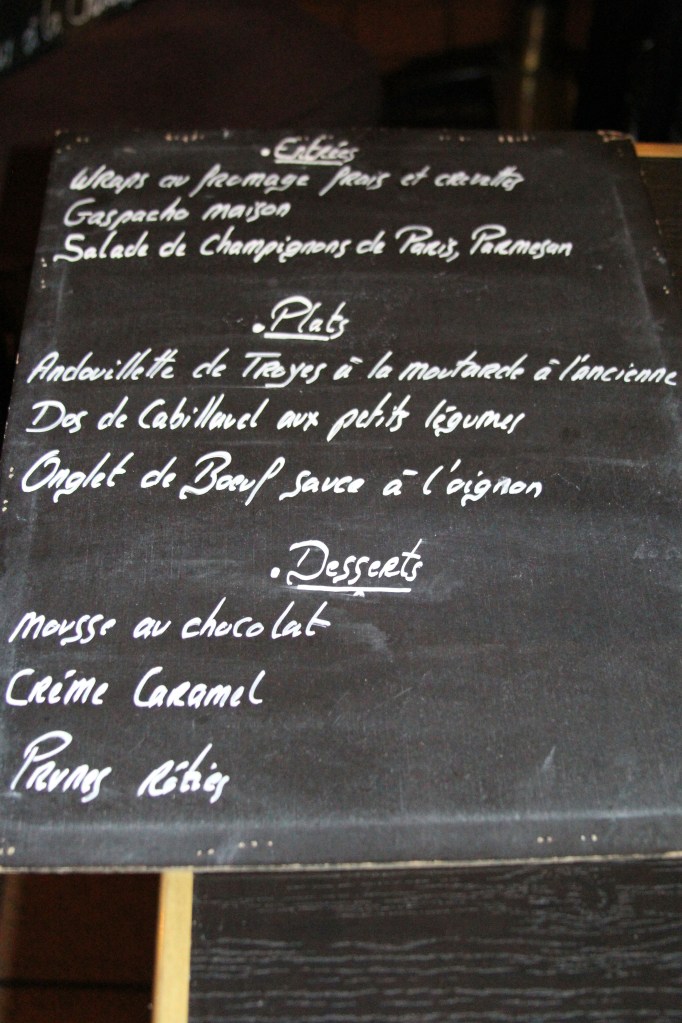 . Entrées
Wraps au fromage frais et crevettes
Gaspacho maison
Salade de Champignons de Paris, Parmesan
. Plats
Andouillette de Troyes à la moutarde à l'ancienne
Dos de Cabillaud aux petits légumes
Onglet de Boeuf sauce à l'oignon
. Desserts
mousse au chocolat
Crème Caramel
Prunes Rôties